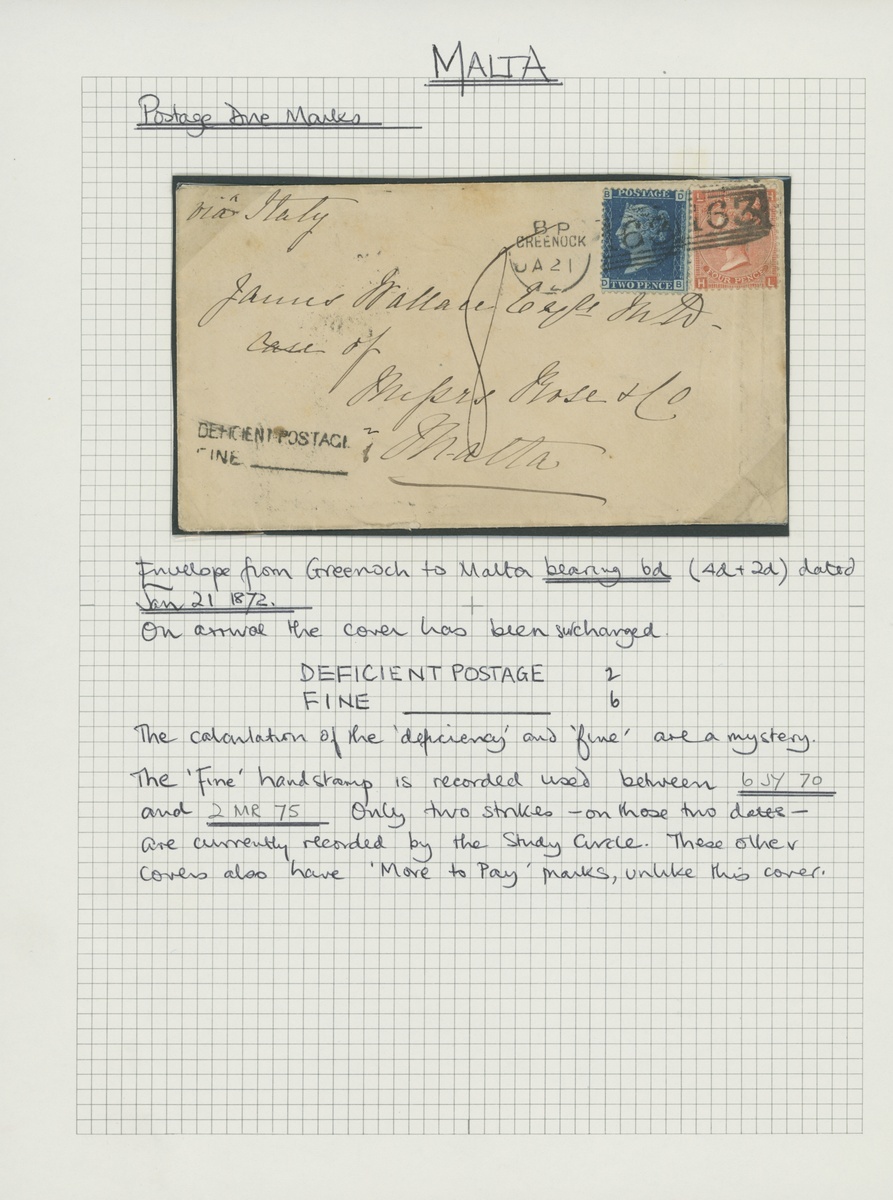 MALTA
Postage Due Marks
viâ Italy
POSTAGE
TWO PENCE
163
FOUR PENCE
8 P
GREENOCK
JA 21
James Wallace Esqre M.D.
care of
Messrs Rose & Co
Malta
8
DEFICIENT POSTAGE 2
FINE
Envelope from Greenoch to Malta bearing 6d (4d + 2d) dated
Jan 21 1872.
On arrival the cover has been surcharged.
DEFICIENT POSTAGE 2
FINE 6
The calculation of the 'deficiency' and 'fine' are a mystery.
The 'Fine' handstamp is recorded used between 6 JY 70
and 2 MR 75 Only two strikes – on those two dates –
are currently recorded by the Study Circle. These other
covers also have 'More to Pay' marks, unlike this cover.